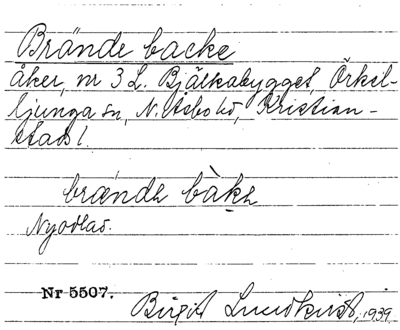 Brände backe
åker, nr 3 L. Bjälkabygget, Örkel-
ljunga sn, N. Åsbo hd, Kristian-
stads l.
brœ́ndə bàkə
Nyodlad.
Nr 5507.
Birgit Lundkvist, 1939